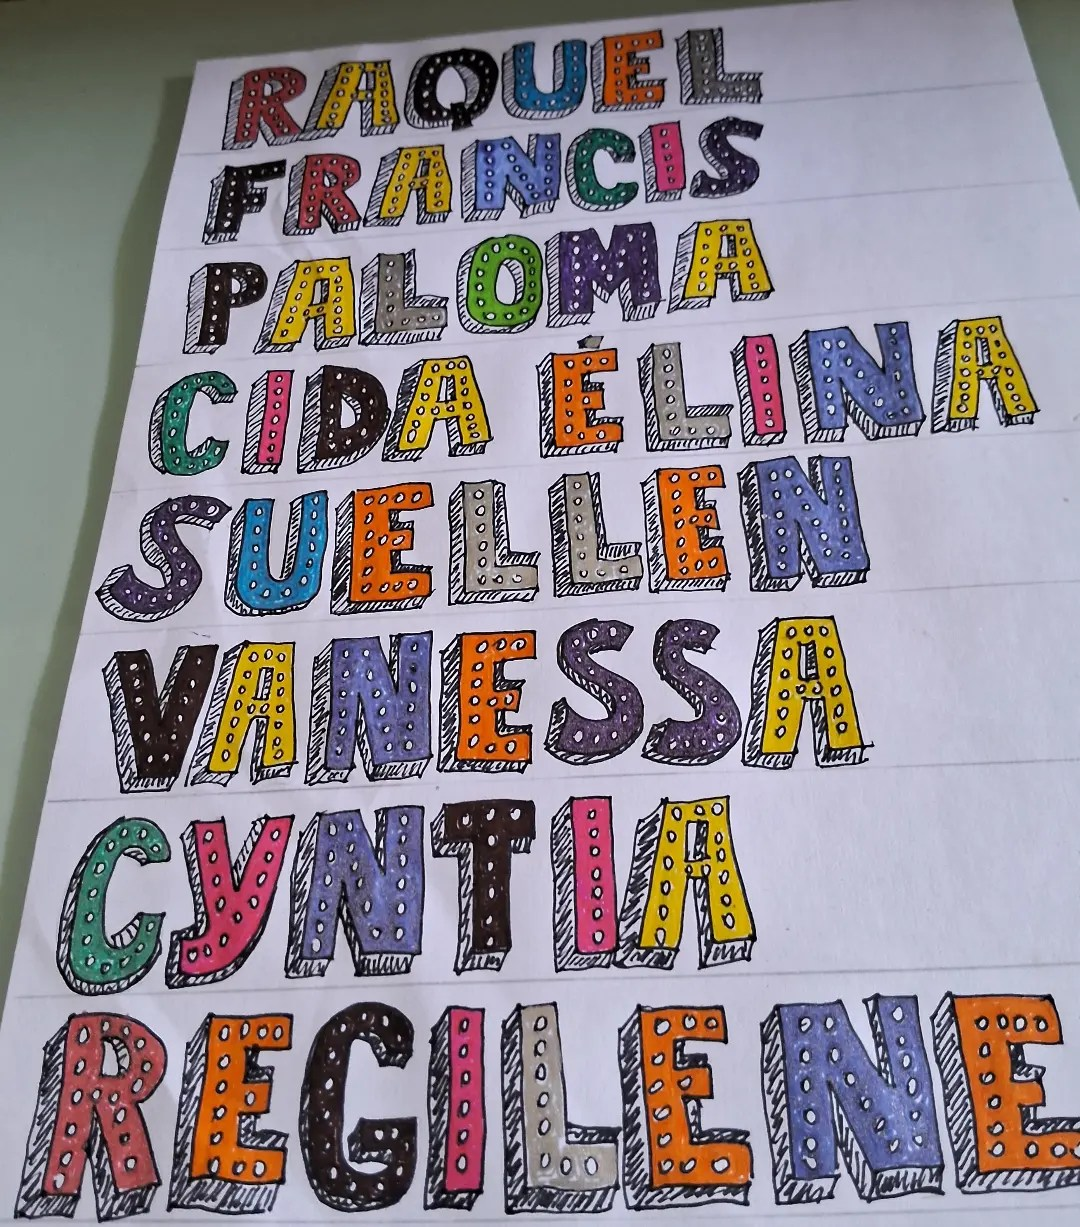 RAQUEL
FRANCIS
PALOMA
CIDA ÉLINA
SUELLEN
VANESSA
CYNTIA
REGILENE